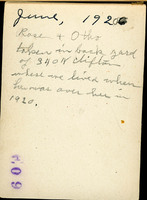 June, 1920
Rose + Otho
taken in back yard
of 340 N Clifton
where we lived when
he was over here in
1920.
209